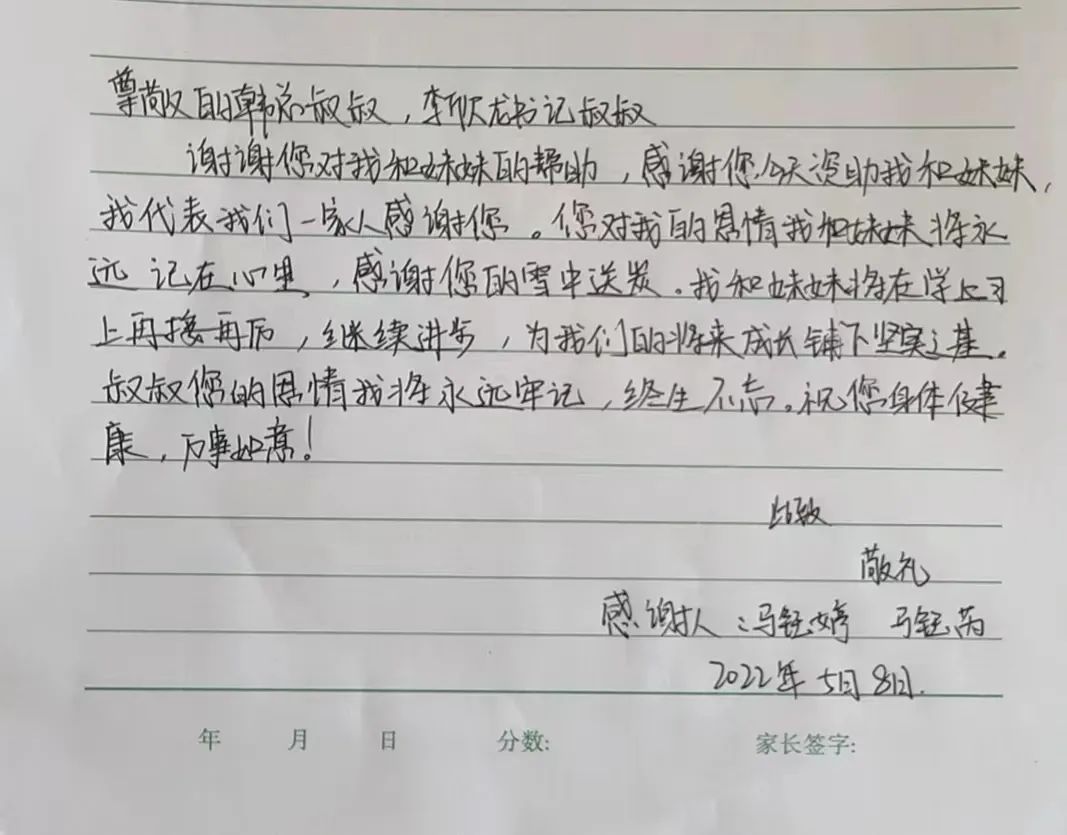 尊敬的韩总叔叔，李龙书记叔叔
谢谢您对我和妹妹的帮助，感谢您今天资助我和妹妹，
我代表我们一家人感谢您。您对我的恩情我和妹妹将永
远记在心里，感谢您的雪中送炭。我和妹妹将在学习
上再接再厉，继续进步，为我们的将来成长铺下坚实之基。
叔叔您的恩情我将永远牢记，终生不忘。祝您身体健
康，万事如意！
此致
敬礼
感谢人：马钰婷 马钰芮
2022年5月8日.
年 月 日 分数: 家长签字: